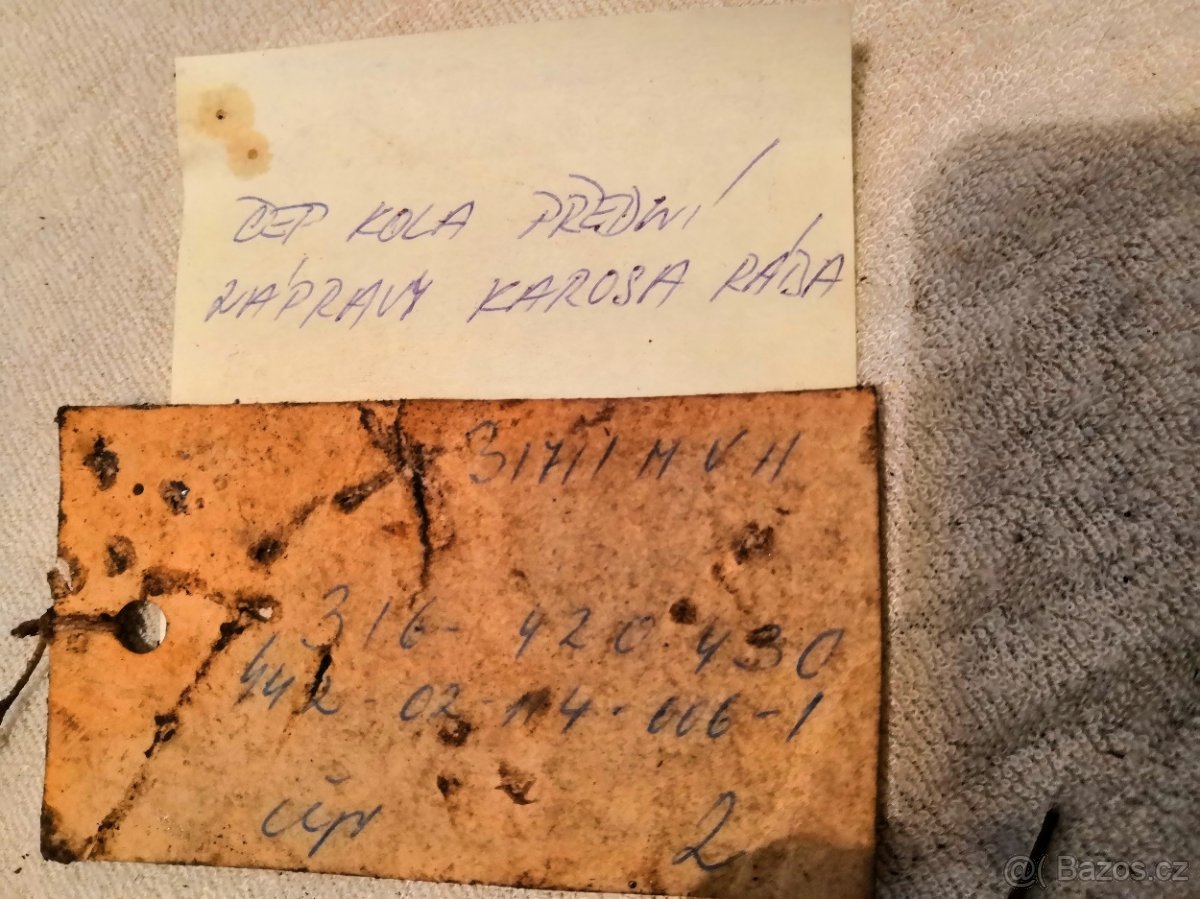 ČEP KOLA PŘEDNÍ
NÁPRAVY KAROSA RÁBA
31711 M V H
316- 420.430
442-02-114-006-1
čep 2
@( Bazos.cz